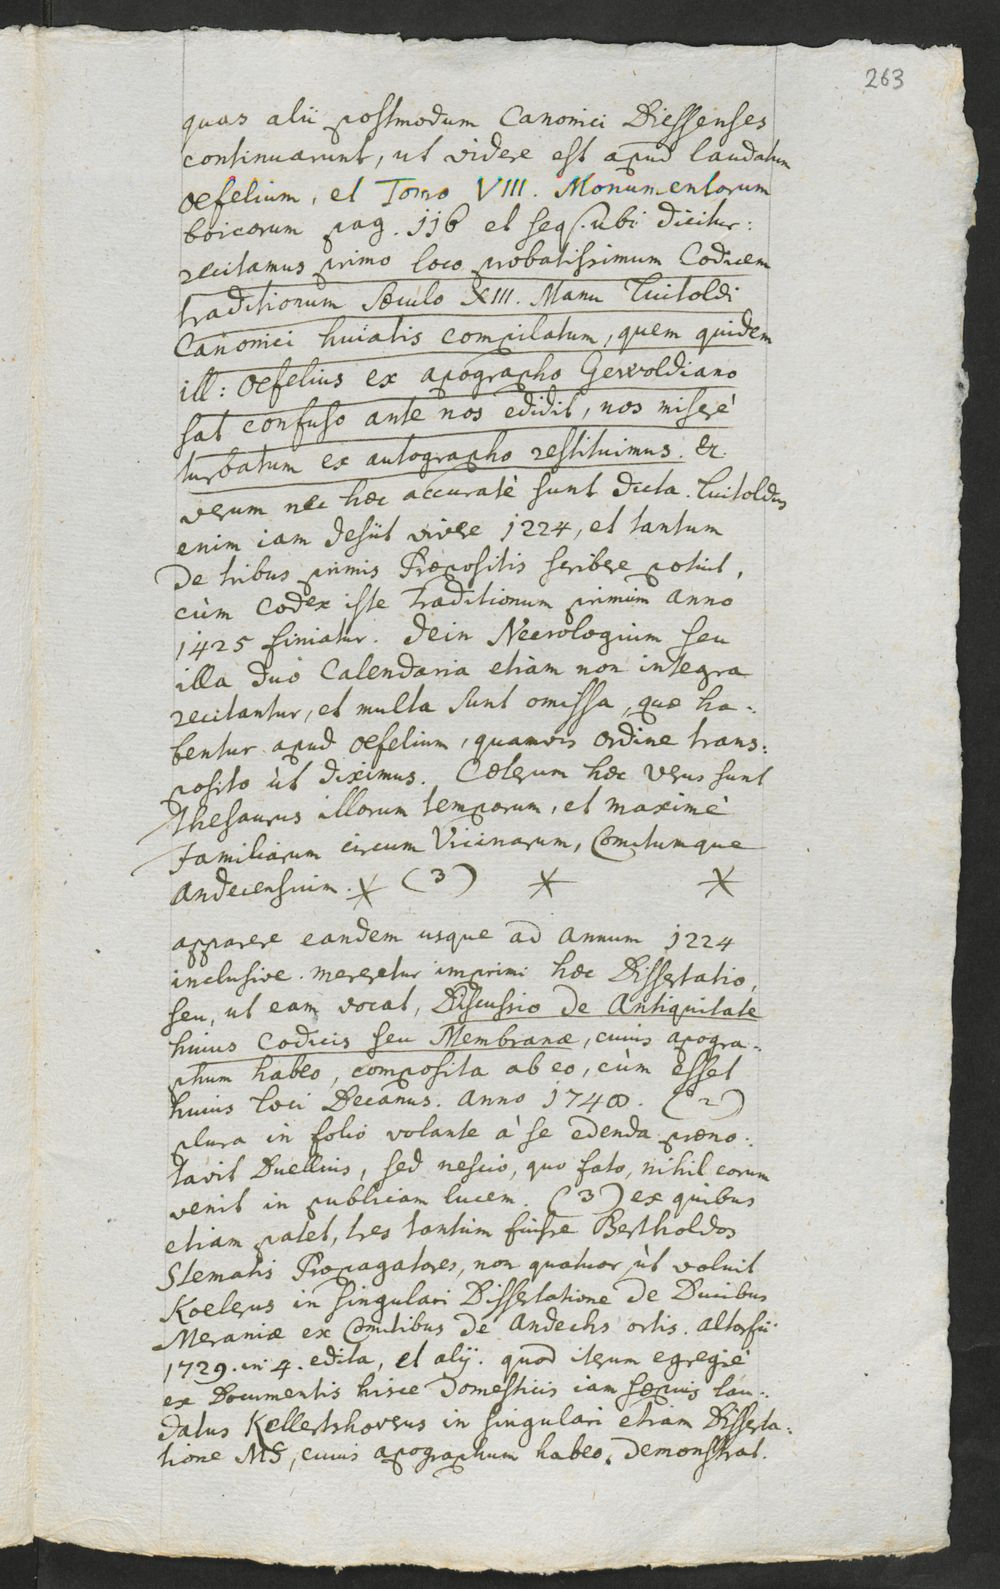 263
quas alii postmodum Canonici Diessenses
continuarunt, ut videre est apud laudatum
Oefelium, et Tomo VIII. Monumentorum
boicorum pag. 116 et seq. ubi dicitur:
recitamus primo loco probatissimum Codicem
traditionum sæculo XIII. Manu Luitoldi
Canonici huiatis compilatum, quem quidem
ill: Oefelius ex apographo Gewoldiano
sat confuso ante nos edidit, nos miserè
turbatum ex autographo restituimus. &.
verum nec hæc accuratè sunt dicta. Luitoldus
enim iam desiit vivere 1224, et tantum
de tribus primis Præpositis scribere potuit,
cùm Codex iste traditionum primùm anno
1425 finiatur. Dein Necrologium seu
illa duo Calendaria etiàm non integra
recitantur, et multa sunt omissa, quæ ha-
bentur apud Oefelium, quamvis ordine trans:
posito ùt diximus. Cæterum hæc verus sunt
thesaurus illorum temporum, et maximè
familiarum circum Vicinarum, Comitumque
Andecensium. * (3) * *
apparere eandem usque ad annum 1224
inclusive. meretur imprimi hæc Dissertatio,
seu, ut eam vocat, Discussio de Antiquitate
huius Codicis seu Membranæ, cuius apogra-
phum habeo, composita ab eo, cùm esset
huius loci Decanus. Anno 1748. (2)
plura in folio volante à se edenda præno-
tavit Duellius, sed nescio, quo fato, nihil eorum
venit in publicam lucem. (3) ex quibus
etiam patet, tres tantùm fuisse Bertholdos
Stematis Propagatores, non quatuor ùt voluit
Koelerus in singulari Dissertatione de Ducibus
Meraniæ ex Comitibus de Andechs ortis. Altorfii
1729. in 4. edita, et alij. quod iterum egregiè
ex Documentis hisce Domesticis iam sæpius lau-
datus Kellershoverus in singulari etiam Disserta-
tione MS, cuius apographum habeo, demonstrat.